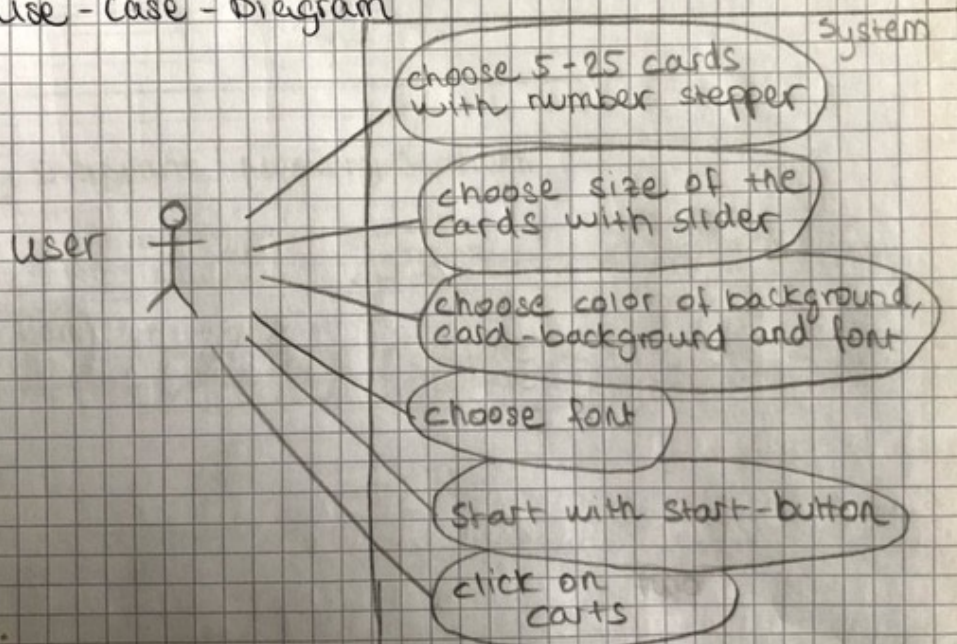 use-Case-Diagram
System
choose 5-25 cards
with number stepper
choose size of the
cards with slider
user
choose color of background,
card-background and font
choose font
start with start-button
click on
carts